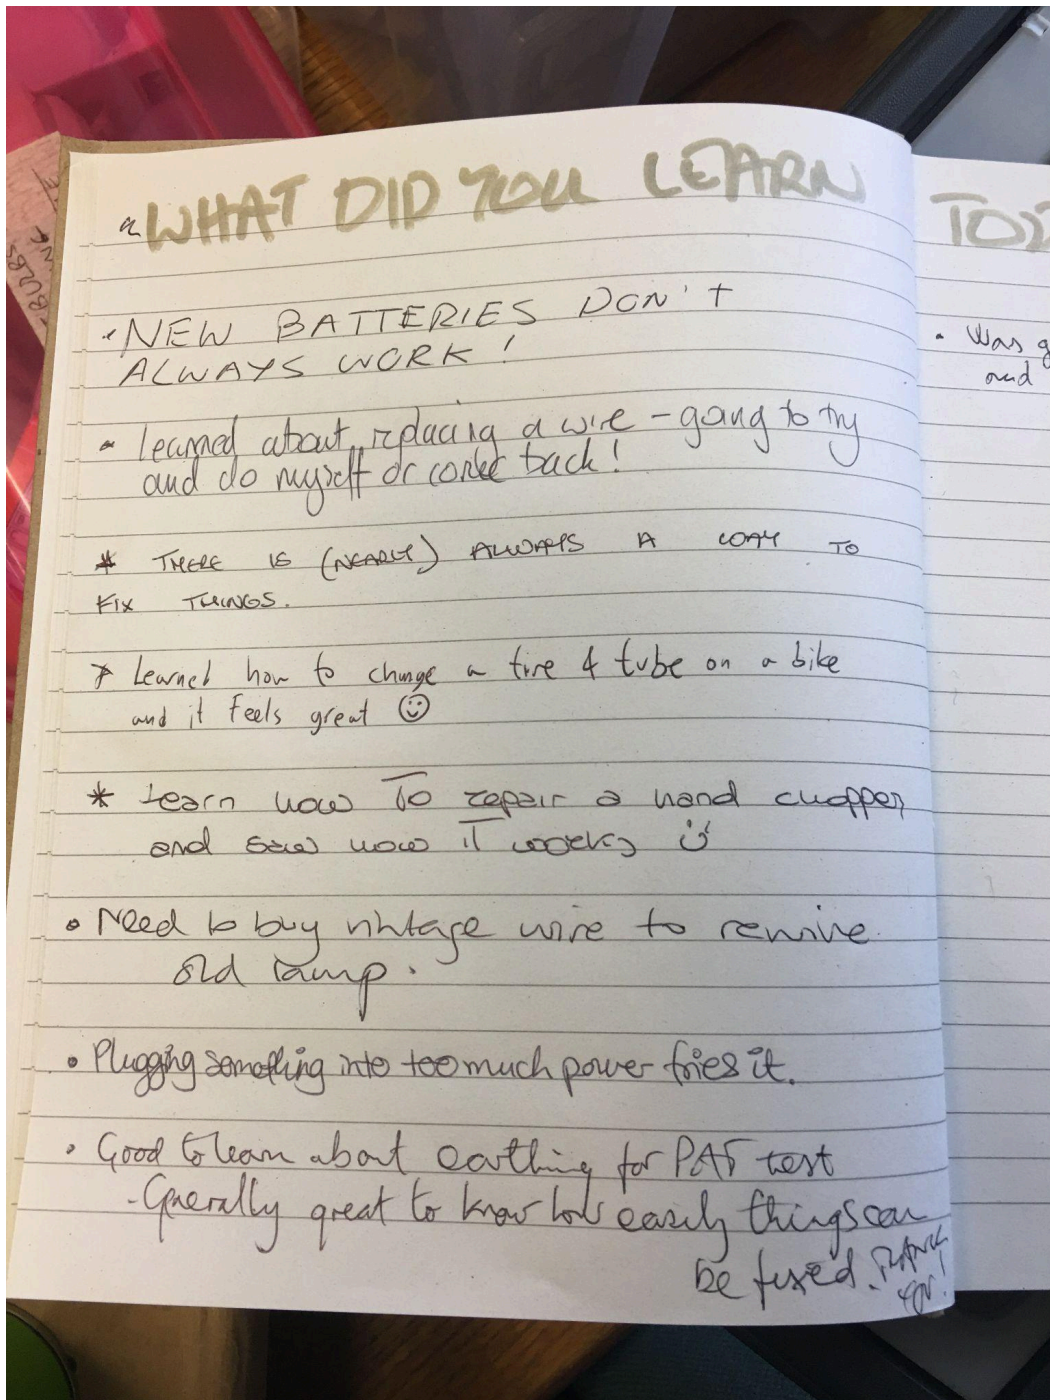 WHAT DID YOU LEARN
• NEW BATTERIES DON'T
ALWAYS WORK!
- learned about replacing a wire - going to try
and do myself or come back!
* THERE IS (NEARLY) ALWAYS A WAY TO
FIX THINGS.
* Learned how to change a tire & tube on a bike
and it feels great ☺
* Learn how To repair a hand chopper
and saw how iT works
• Need to buy vintage wire to rewire
old lamp.
• Plugging something into too much power fries it.
• Good to learn about earthing for PAT test
- Generally great to know how easily things can
be fixed. THANK
YOU!
• Was
and
BULBS